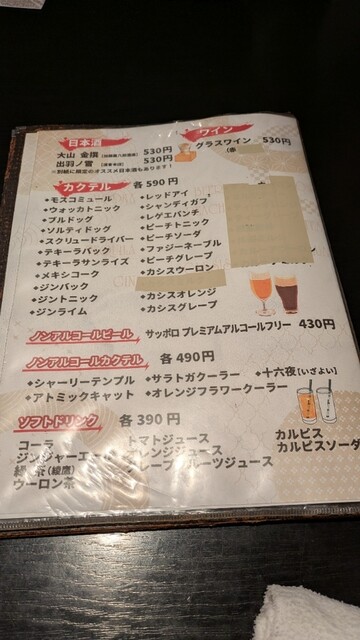 日本酒
大山 金撰 530円
出羽ノ雪 530円
※別紙に限定のオススメ日本酒もあります！
ワイン
グラスワイン 530円
(赤
カクテル 各590円
•モスコミュール
•ウォッカトニック
•ブルドッグ
•ソルティドッグ
•スクリュードライバー
•テキーラバック
•テキーラサンライズ
•メキシコーク
•ジンバック
•ジントニック
•ジンライム
•レッドアイ
•シャンディガフ
•レゲエパンチ
•ピーチトニック
•ピーチソーダ
•ファジーネーブル
•ピーチグレープ
•カシスウーロン
•カシスオレンジ
•カシスグレープ
ノンアルコールビール サッポロ プレミアムアルコールフリー 430円
ノンアルコールカクテル 各490円
•シャーリーテンプル •サラトガクーラー •十六夜[いざよい]
•アトミックキャット •オレンジフラワークーラー
ソフトドリンク 各390円
コーラ
ジンジャーエール
緑茶(綾鷹)
ウーロン茶
トマトジュース
オレンジジュース
グレープフルーツジュース
カルピス
カルピスソーダ